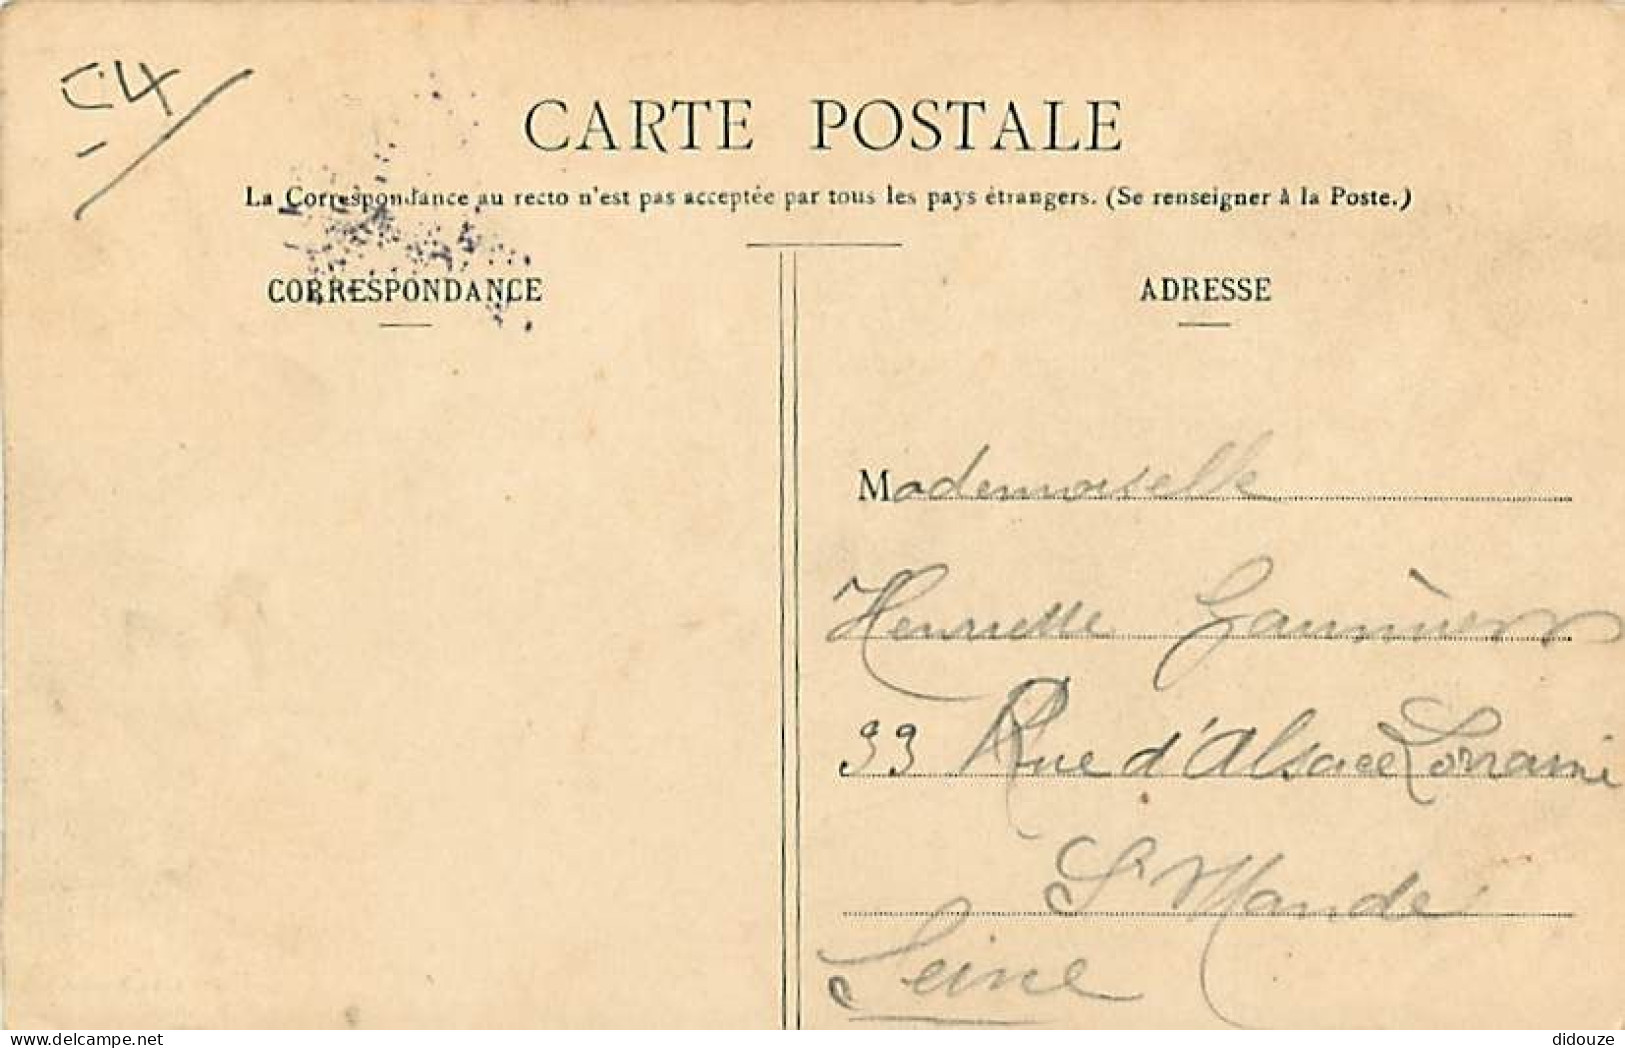 C4
CARTE POSTALE
La Correspondance au recto n'est pas acceptée par tous les pays étrangers. (Se renseigner à la Poste.)
CORRESPONDANCE
ADRESSE
Mademoiselle
Henriette
33 Rue d'Alsace Lorraine
St Mandé
Seine
delcampe.net
didouze